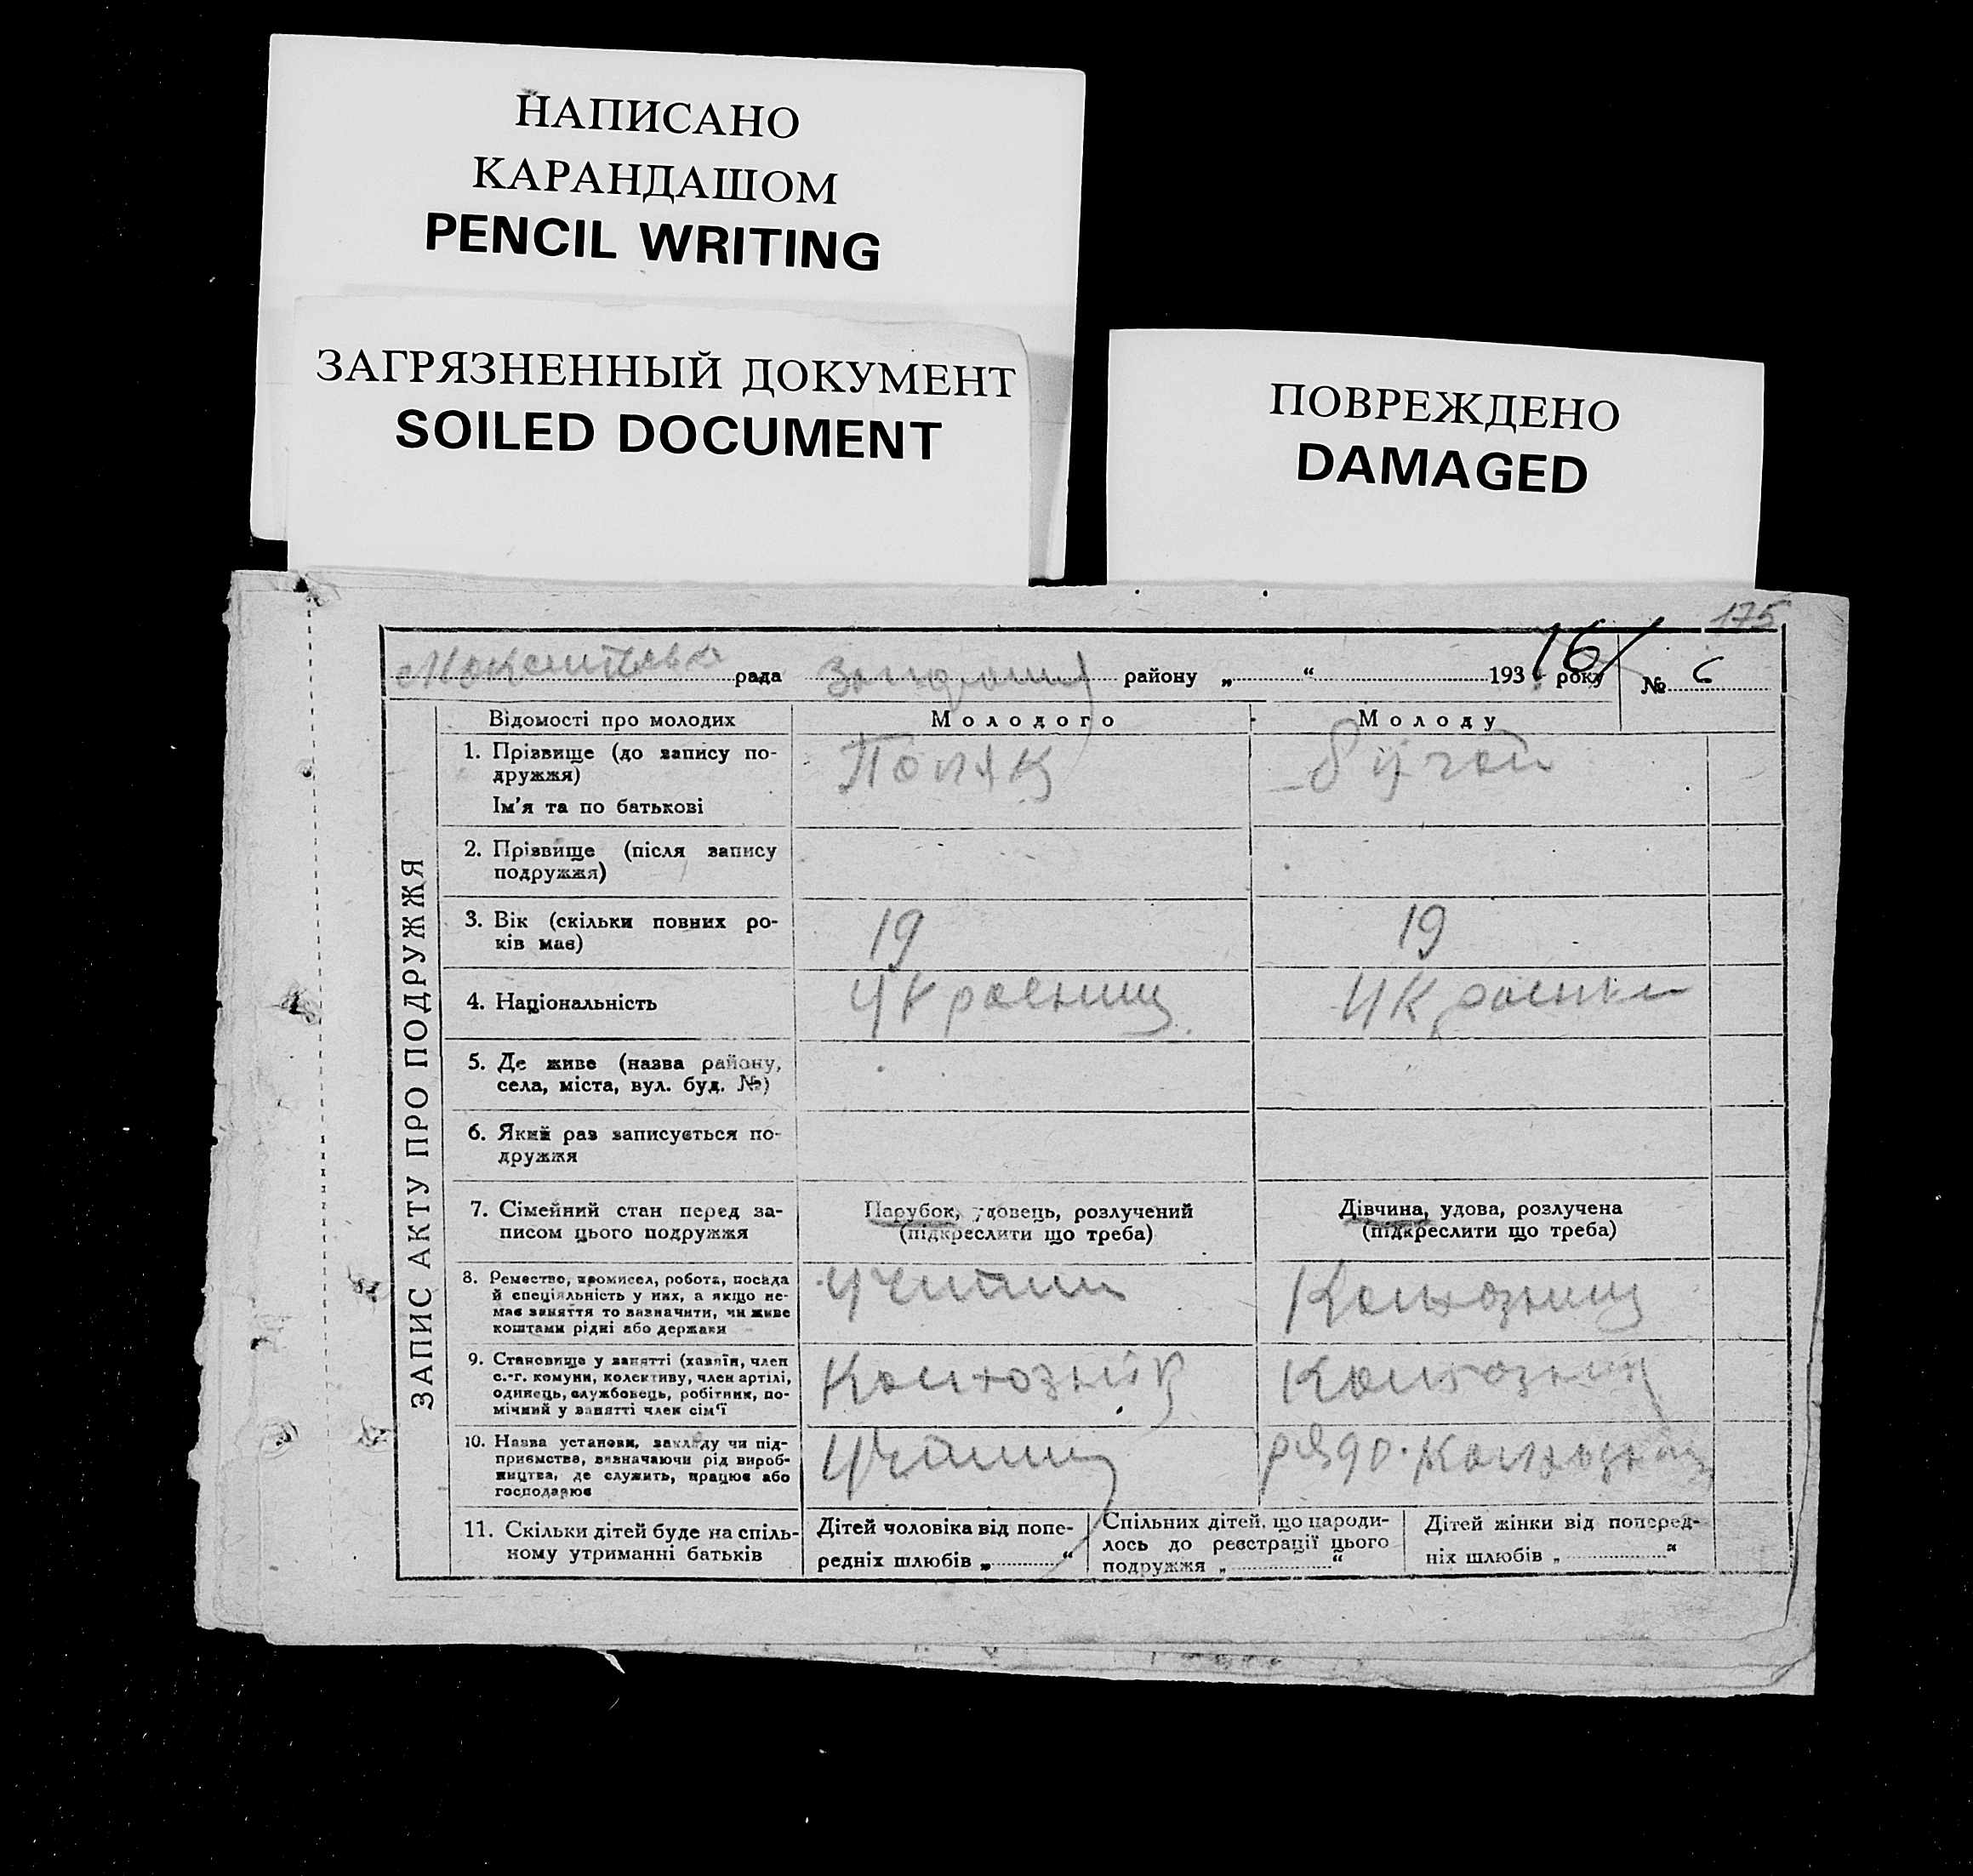 НАПИСАНО
КАРАНДАШОМ
PENCIL WRITING
ЗАГРЯЗНЕННЫЙ ДОКУМЕНТ
SOILED DOCUMENT
ПОВРЕЖДЕНО
DAMAGED
175
161
рада району „ “ 193 року № 6
ЗАПИС АКТУ ПРО ПОДРУЖЖЯ
Відомості про молодих Молодого Молоду
1. Прізвище (до запису по-
дружжя)
Ім'я та по батькові
Поляк
2. Прізвище (після запису
подружжя)
3. Вік (скільки повних ро-
ків має)
19 19
4. Національність
5. Де живе (назва району,
села, міста, вул. буд. №)
6. Який раз записується по-
дружжя
7. Сімейний стан перед за-
писом цього подружжя
Парубок, удовець, розлучений
(підкреслити що треба)
Дівчина, удова, розлучена
(підкреслити що треба)
8. Ремество, промисел, робота, посада
й спеціяльність у них, а якщо не-
має заняття то зазначити, чи живе
коштами рідні або держави
9. Становище у занятті (хазяїн, член
с.-г. комуни, колективу, член артілі,
одинець, службовець, робітник, по-
мічний у занятті член сім'ї
10. Назва установи, закладу чи під-
приємства, визначаючи рід вироб-
ництва, де служить, працює або
господарює
11. Скільки дітей буде на спіль-
ному утриманні батьків
Дітей чоловіка від попе-
редніх шлюбів „ “
Спільних дітей, що народи-
лось до реєстрації цього
подружжя „ “
Дітей жінки від поперед-
ніх шлюбів „ “